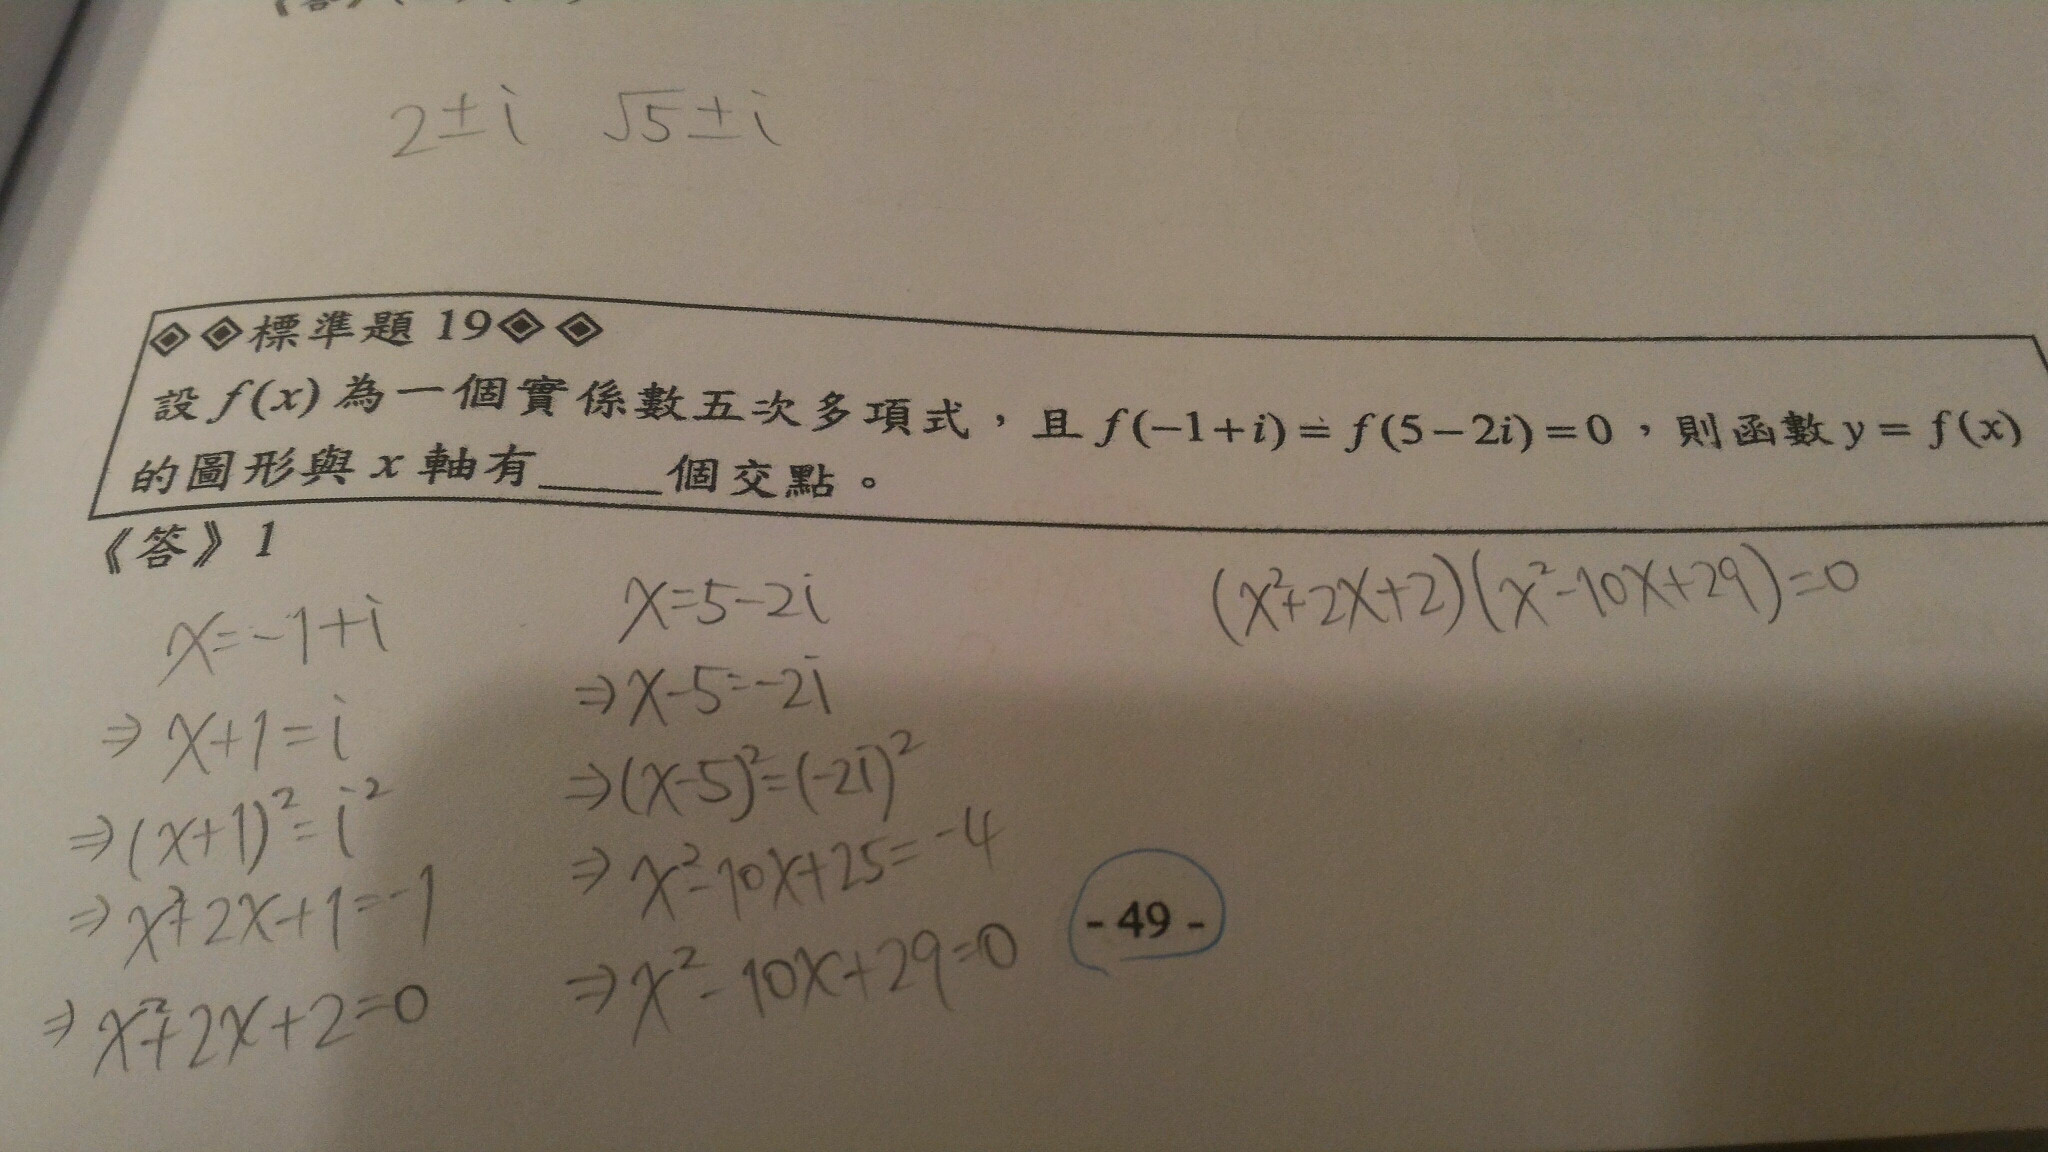 2±i √5±i
◈◈標準題 19◈◈
設 f(x) 為一個實係數五次多項式，且 f(−1+i) = f(5−2i) = 0，則函數 y = f(x)
的圖形與 x 軸有____個交點。
《答》1
x=-1+i
⇒ x+1=i
⇒ (x+1)²=i²
⇒ x²+2x+1=-1
⇒ x²+2x+2=0
x=5-2i
⇒ x-5=-2i
⇒ (x-5)²=(-2i)²
⇒ x²-10x+25=-4
⇒ x²-10x+29=0
(x²+2x+2)(x²-10x+29)=0
- 49 -